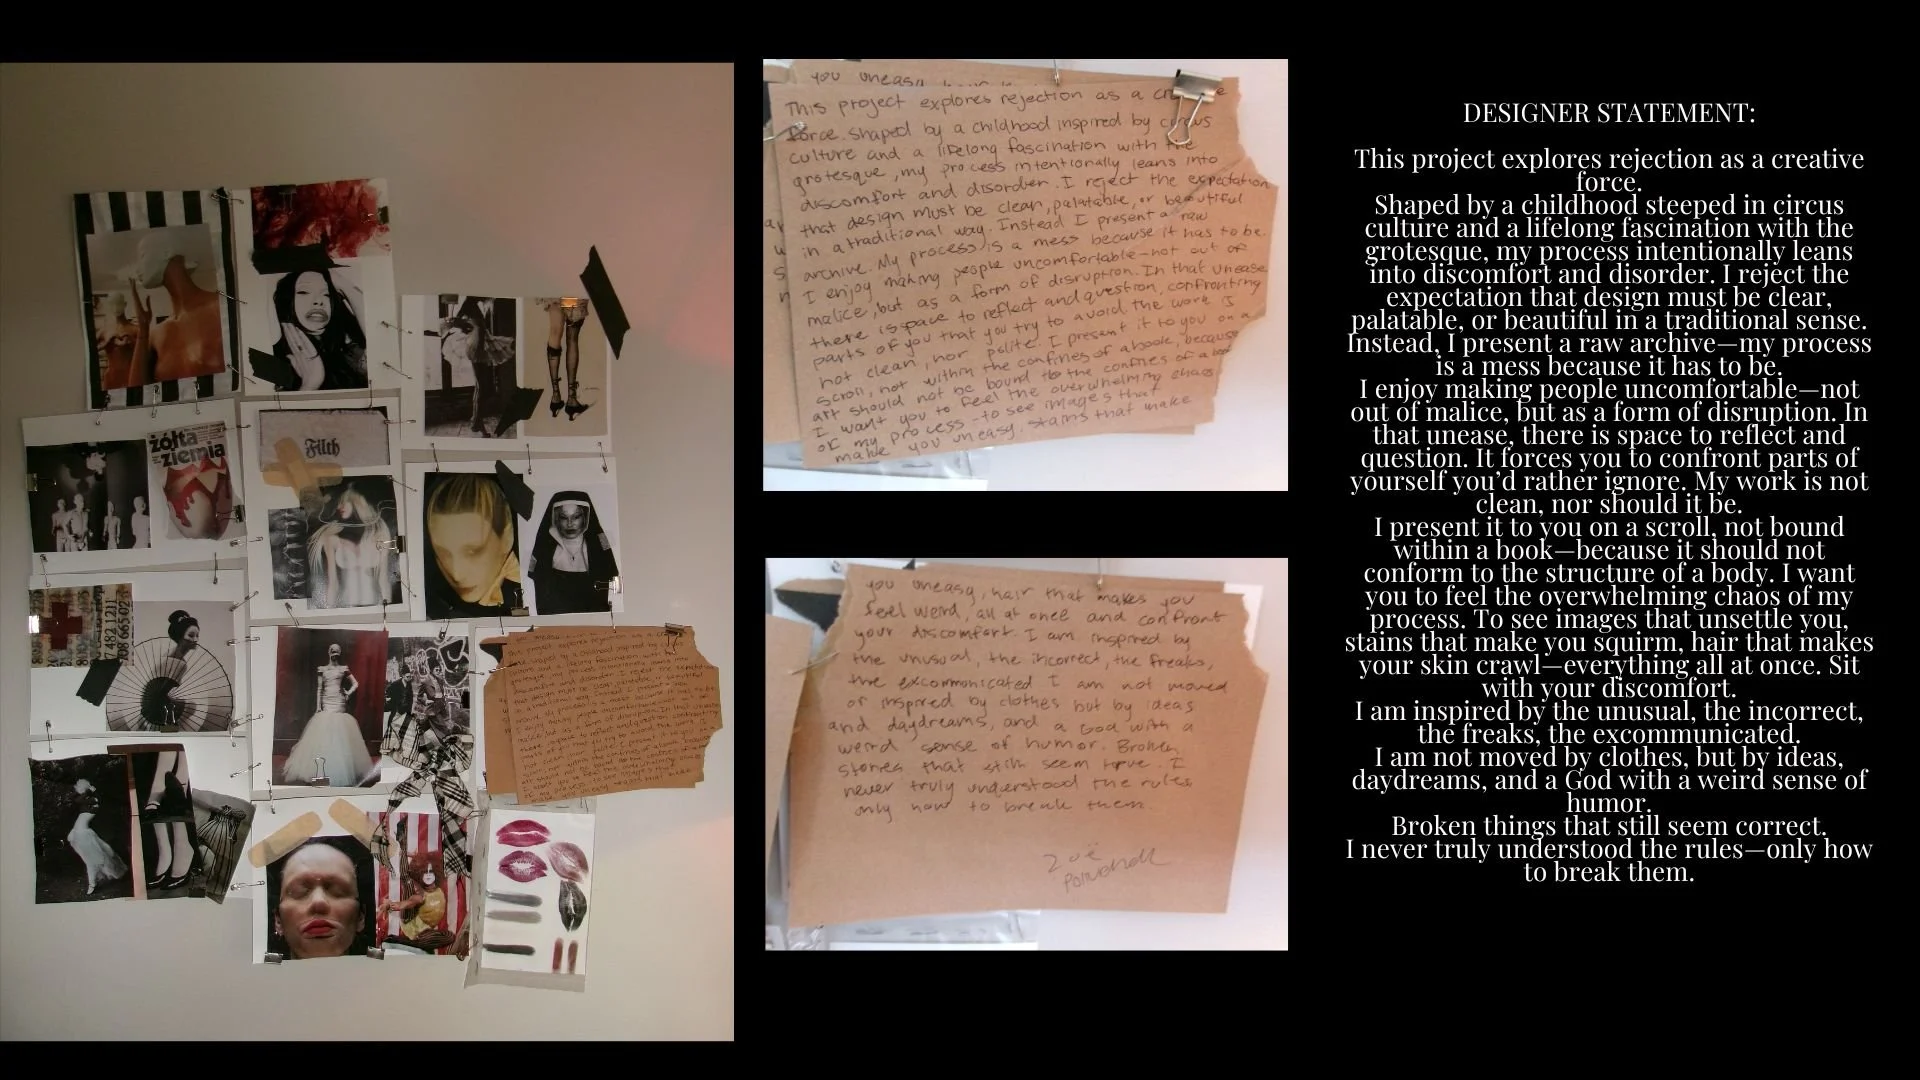 żółta
ziemia
Filth
you uneasy
This project explores rejection as a
force. Shaped by a childhood inspired by circus
culture and a lifelong fascination with the
grotesque, my process intentionally leans into
discomfort and disorder. I reject the expectation
that design must be clean, palatable, or beautiful
in a traditional way. Instead I present a raw
archive. My process is a mess because it has to be.
I enjoy making people uncomfortable-not out of
malice, but as a form of disruption. In that unease
there is space to reflect and question, confronting
parts of you that you try to avoid. the work is
not clean, nor polite. I present it to you on a
scroll, not within the confines of a book, because
art should not be bound to the confines of a book
I want you to feel the overwhelming chaos
of my process - to see images that
make you uneasy. stains that make
you uneasy, hair that makes you
feel weird, all at once and confront
your discomfort. I am inspired by
the unusual, the incorrect, the freaks,
the excommunicated I am not moved
or inspired by clothes but by ideas
and daydreams, and a God with a
weird sense of humor. Broken
stories that still seem I
never truly understood the rules
only how to break them.
Zoë
DESIGNER STATEMENT:
This project explores rejection as a creative
force.
Shaped by a childhood steeped in circus
culture and a lifelong fascination with the
grotesque, my process intentionally leans
into discomfort and disorder. I reject the
expectation that design must be clear,
palatable, or beautiful in a traditional sense.
Instead, I present a raw archive—my process
is a mess because it has to be.
I enjoy making people uncomfortable—not
out of malice, but as a form of disruption. In
that unease, there is space to reflect and
question. It forces you to confront parts of
yourself you’d rather ignore. My work is not
clean, nor should it be.
I present it to you on a scroll, not bound
within a book—because it should not
conform to the structure of a body. I want
you to feel the overwhelming chaos of my
process. To see images that unsettle you,
stains that make you squirm, hair that makes
your skin crawl—everything all at once. Sit
with your discomfort.
I am inspired by the unusual, the incorrect,
the freaks, the excommunicated.
I am not moved by clothes, but by ideas,
daydreams, and a God with a weird sense of
humor.
Broken things that still seem correct.
I never truly understood the rules—only how
to break them.